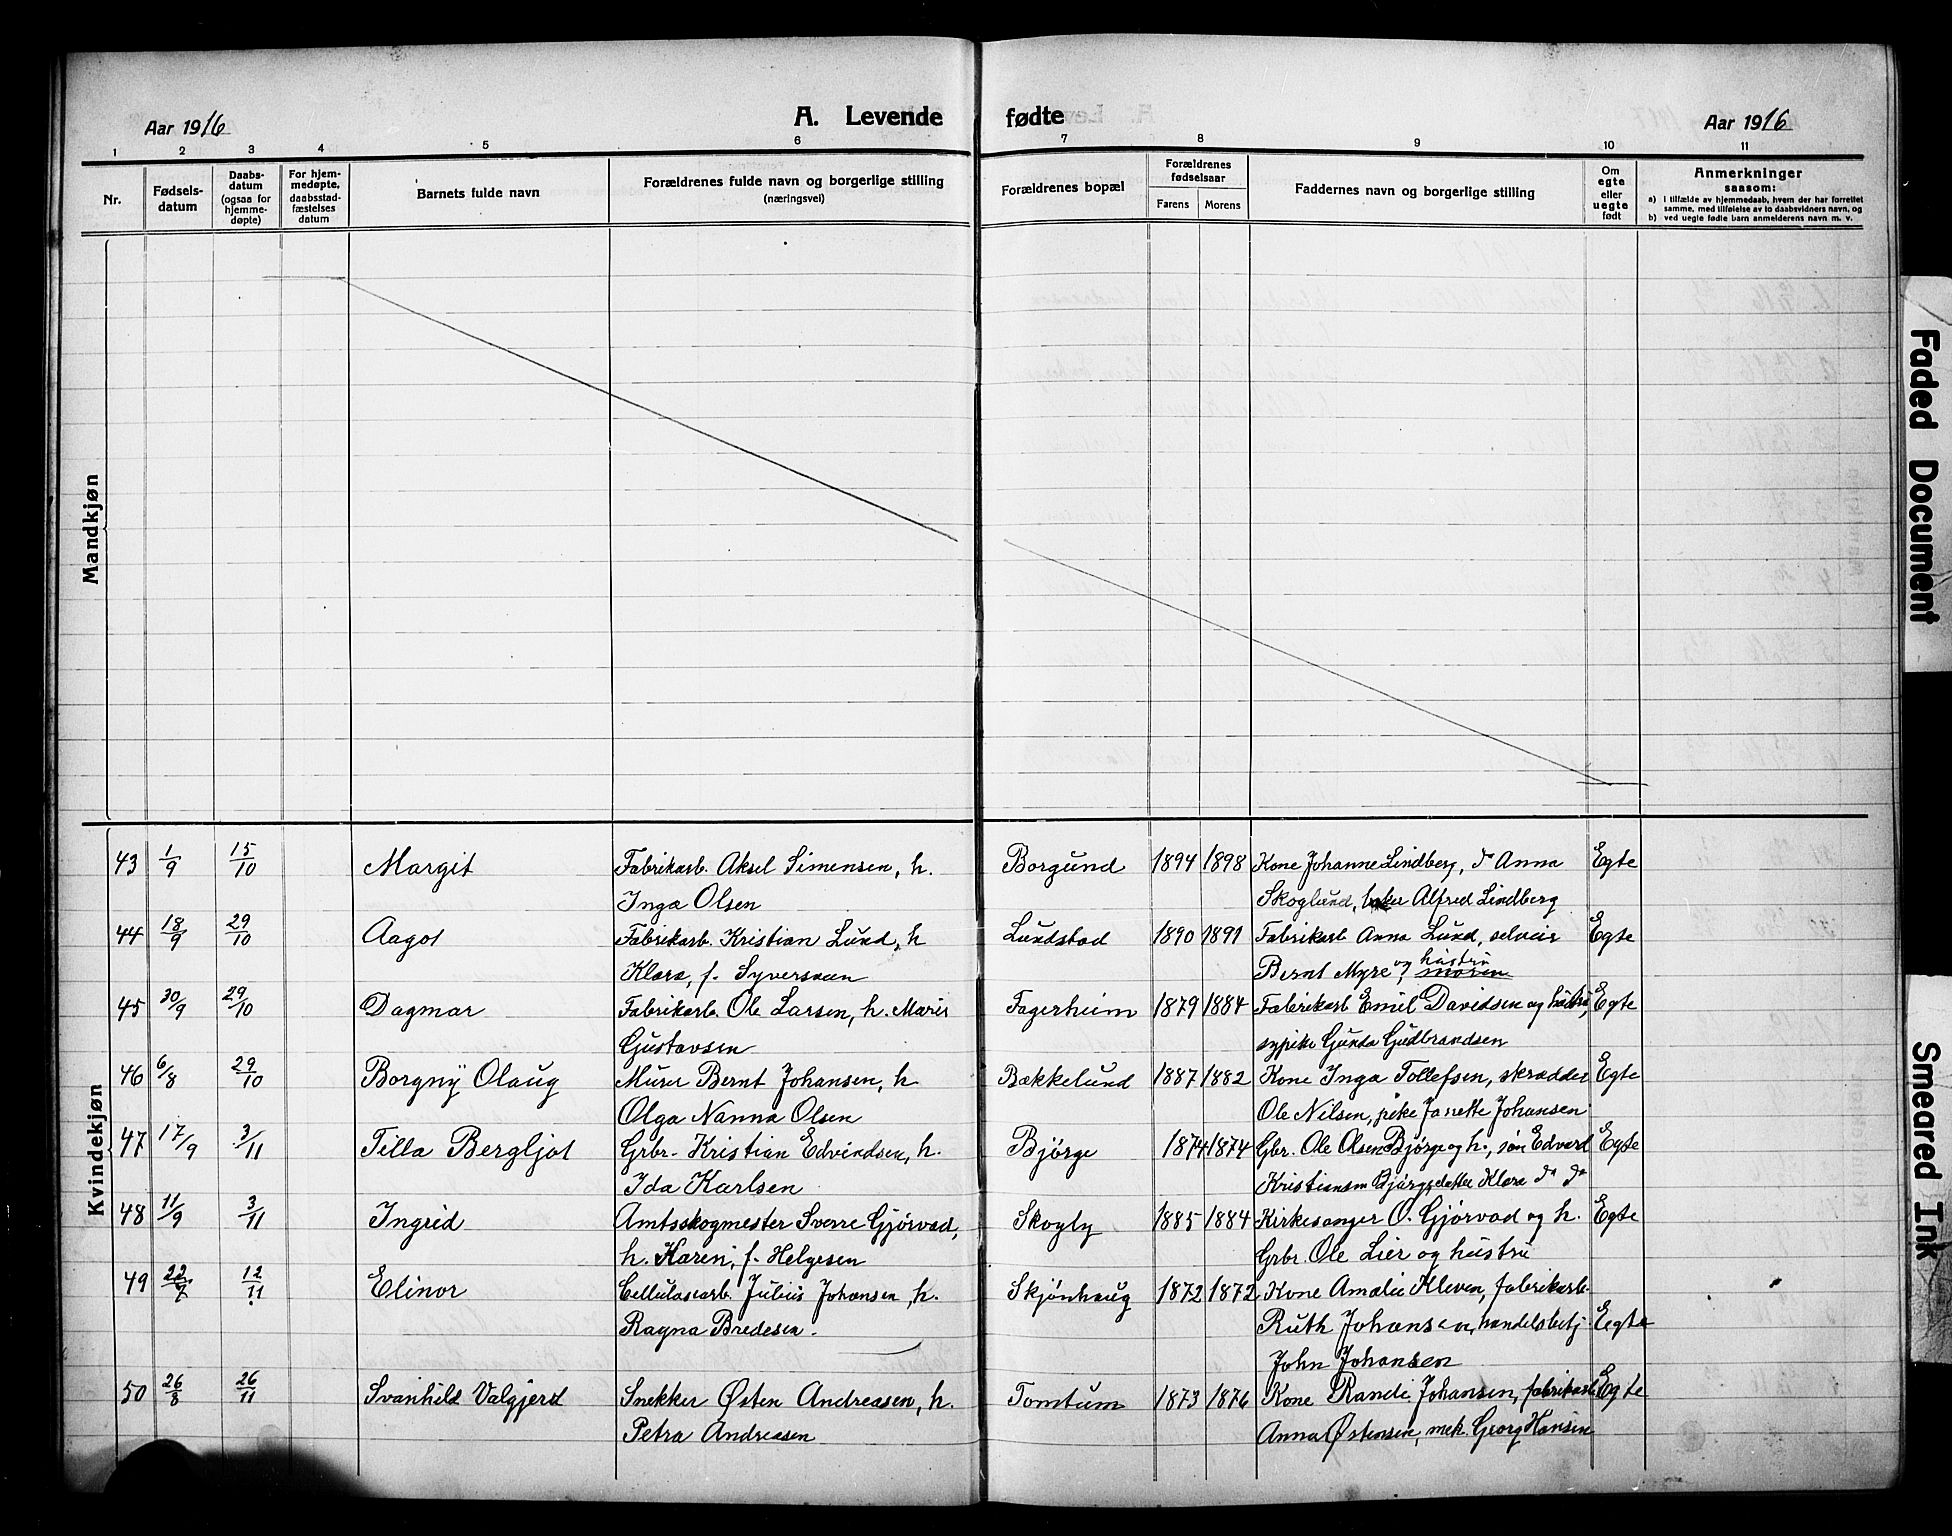 Aar 1916
A. Levende fødte
Aar 1916
1 2 3 4 5 6 7 8 9 10 11
Nr.
Fødsels-
datum
Daabs-
datum
(ogsaa for
hjemme-
døpte)
For hjem-
medøpte,
daabsstad-
fæstelses
datum
Barnets fulde navn
Forældrenes fulde navn og borgerlige stilling
(næringsvei)
Forældrenes bopæl
Forældrenes
fødselsaar
Farens Morens
Faddernes navn og borgerlige stilling
Om
egte
eller
uegte
født
Anmerkninger
saasom:
a) i tilfælde av hjemmedaab, hvem der har forrettet
samme, med tilføielse av to daabsvidners navn, og
b) ved uegte fødte barn anmelderens navn m. v.
Mandkjøn
Kvindekjøn
43 1/9 15/10 Margit Fabrikarb. Aksel Simensen, h. Borgund 1894 1898 Kone Johanne Lindberg, do Anna Egte
Inga Olsen Skoglund, baker Alfred Lindberg
44 18/9 29/10 Aagot Fabrikarb. Kristian Lund, h Lundstad 1890 1891 Fabrikarb Anna Lund, selveier Egte
Klara, f. Syversen Bernt Myre og hustru moren
45 30/9 29/10 Dagmar Fabrikarb. Ole Larsen, h. Marie Fagerheim 1879 1884 Fabrikarb Emil Davidsen og hustru, Egte
Gustavsen sypike Gunda Gudbrandsen
46 6/8 29/10 Borgny Olaug Murer Bernt Johansen, h Bækkelund 1887 1882 Kone Inga Tollefsen, skrædder Egte
Olga Nanna Olsen Ole Nilsen, pike Janette Johansen
47 17/9 3/11 Tilla Bergljot Grbr. Kristian Edvindsen, h. Bjørge 1874 1874 Gbr. Ole Olsen Bjørge og h., søn Edvard Egte
Ida Karlsen Kristiansen Bjørge, datter Klara do do
48 11/9 3/11 Ingrid Amtsskogmester Sverre Gjørvad, Skogly 1885 1884 Kirkesanger O. Gjørvad og h. Egte
h. Karen, f. Helgesen Grbr. Ole Lier og hustru
49 22/9 12/11 Elinor Cellulosearb. Julius Johansen, h. Skjønhaug 1872 1872 Kone Amalie Kleven, fabrikarb.
Ragna Bredesen. Ruth Johansen, handelsbetj. Egte
John Johansen
50 26/8 26/11 Svanhild Valgjerd Snekker Østen Andreasen, h. Tomtum 1873 1876 Kone Randi Johansen, fabrikarb Egte
Petra Andreasen Anna Østensen, mek. Georg Hansen
Faded Document
Smeared Ink